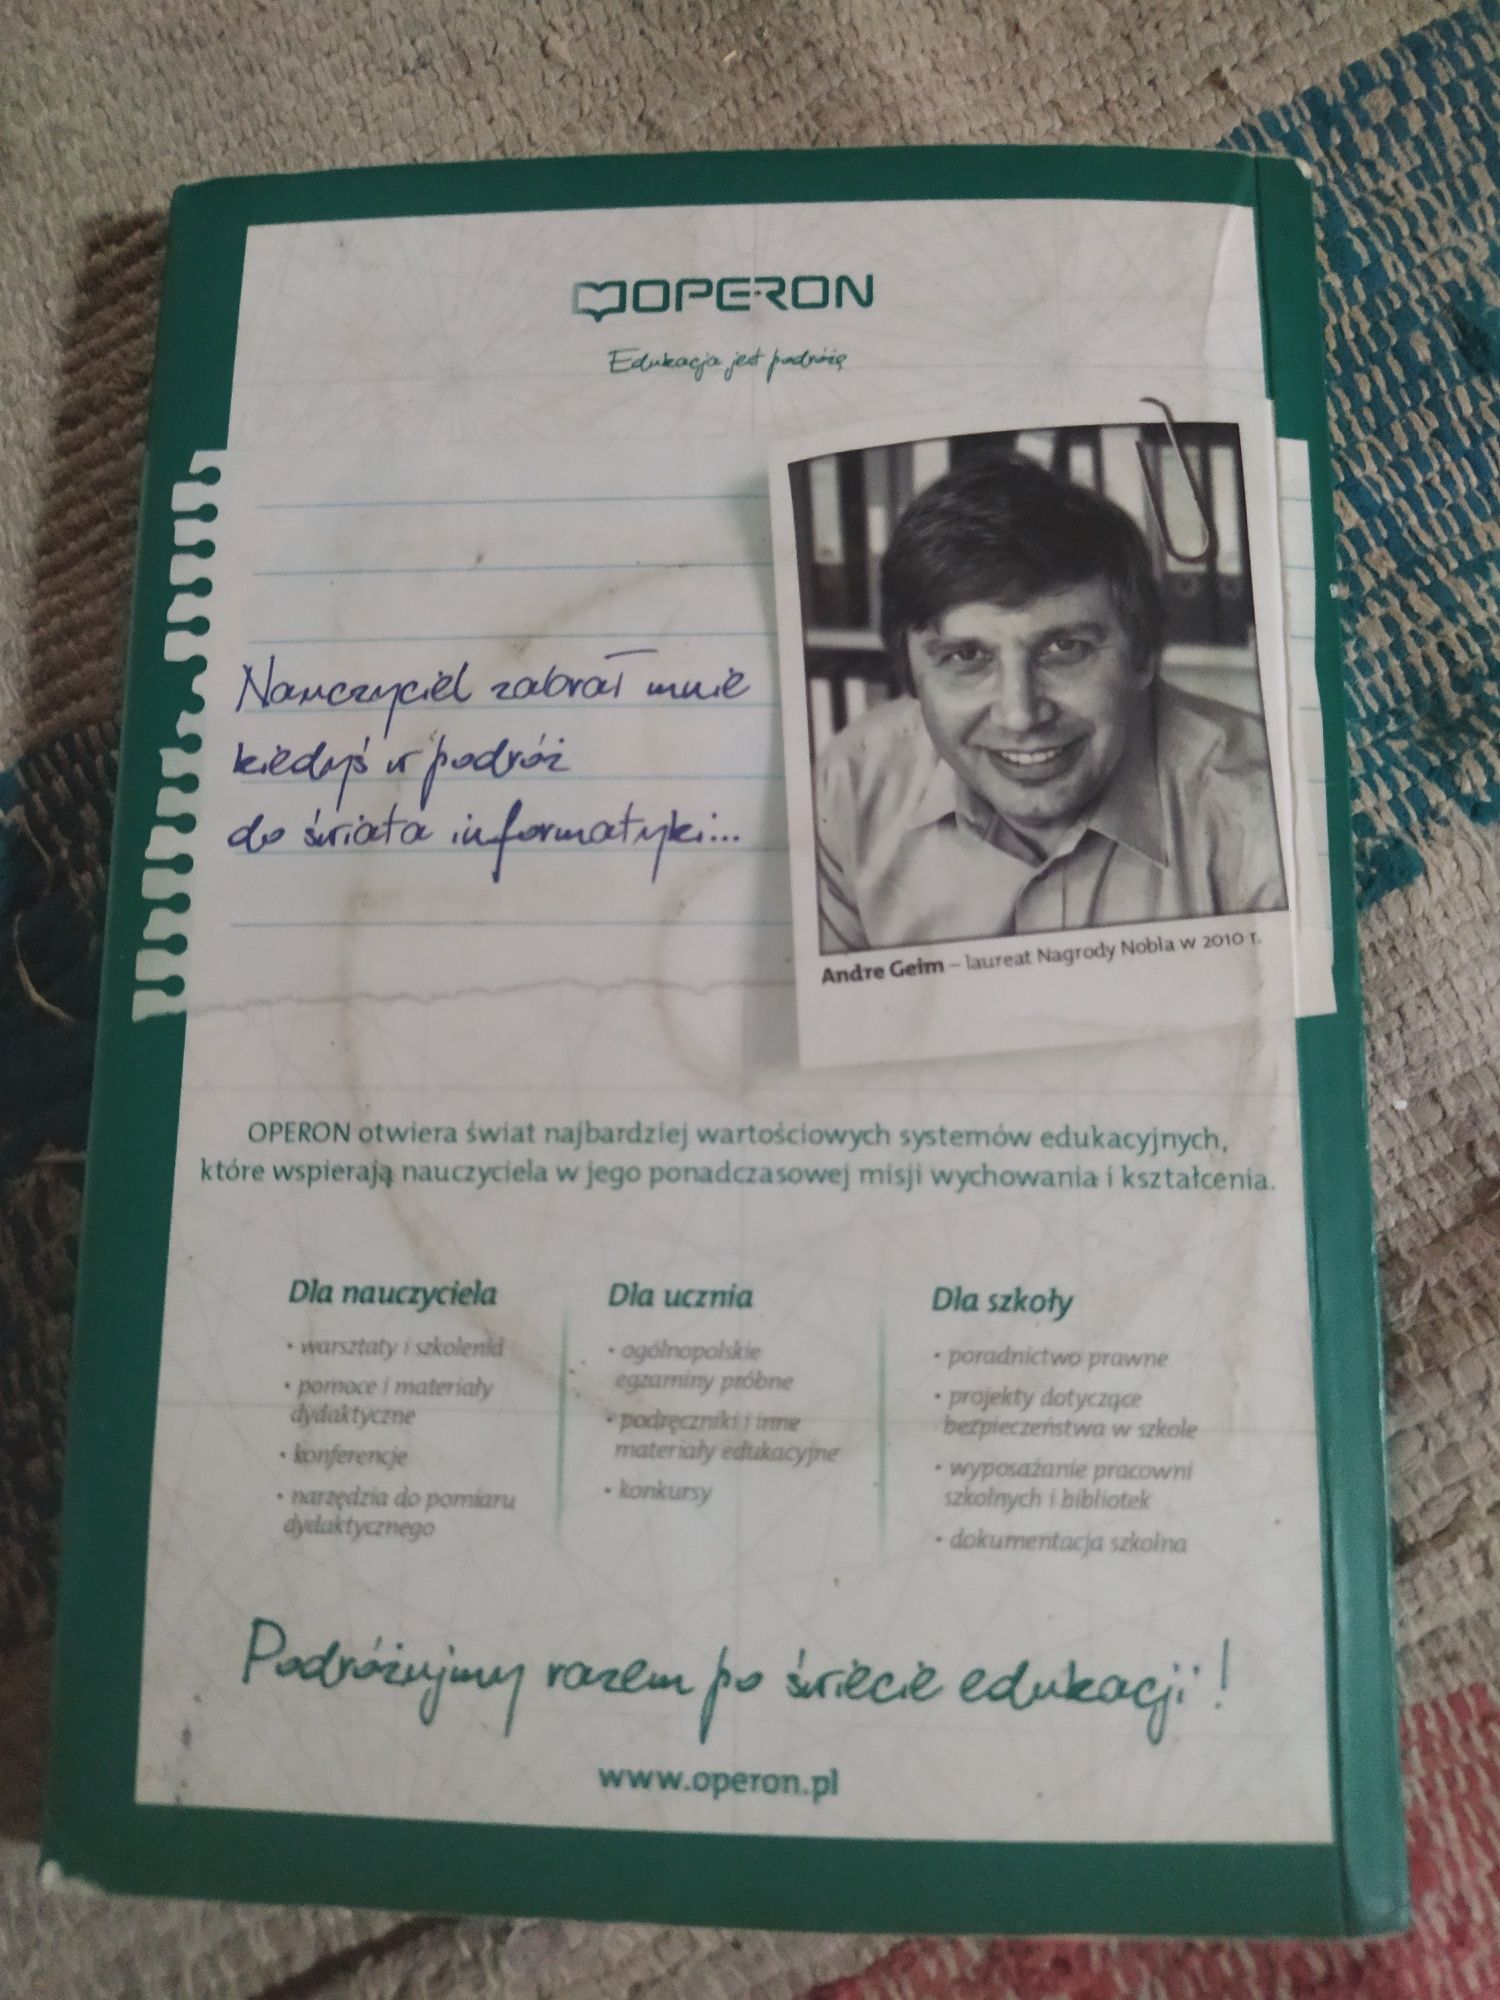 OPERON
Edukacja jest podróżą
Nauczyciel zabrał mnie
kiedyś w podróż
do świata informatyki...
Andre Geim – laureat Nagrody Nobla w 2010 r.
OPERON otwiera świat najbardziej wartościowych systemów edukacyjnych,
które wspierają nauczyciela w jego ponadczasowej misji wychowania i kształcenia.
Dla nauczyciela
• warsztaty i szkolenia
• pomoce i materiały
dydaktyczne
• konferencje
• narzędzia do pomiaru
dydaktycznego
Dla ucznia
• ogólnopolskie
egzaminy próbne
• podręczniki i inne
materiały edukacyjne
• konkursy
Dla szkoły
• poradnictwo prawne
• projekty dotyczące
bezpieczeństwa w szkole
• wyposażanie pracowni
szkolnych i bibliotek
• dokumentacja szkolna
Podróżujmy razem po świecie edukacji!
www.operon.pl